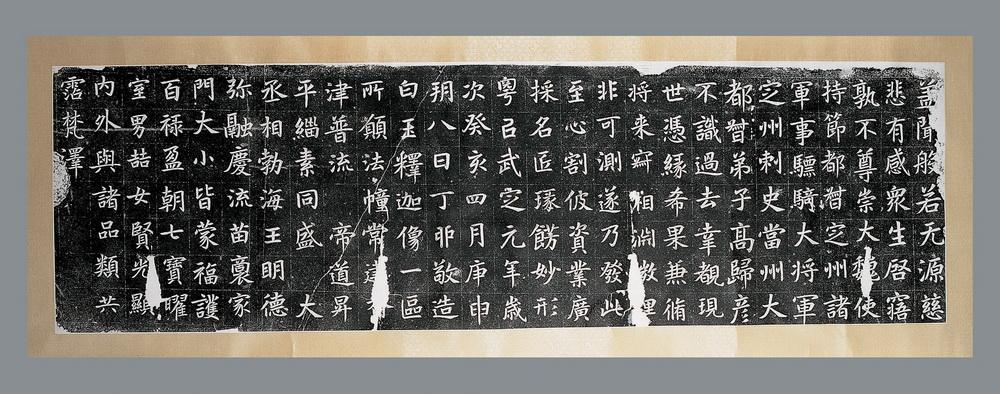 盖聞般若无源慈
悲有感衆生啓寤
孰不尊崇大魏使
持節都督㝎州諸
軍事驃騎大将軍
㝎州刺史當州大
都督弟子髙歸彦
不識過去幸覩現
世憑縁希果兼脩
将来寂相渊微理
非可測遂乃發此
至心割彼資業廣
採名匠琢餝妙形
粤以武㝎元年歳
次癸亥四月庚申
朔八日丁卯敬造
白玉釋迦像一區
所願法幢常建
津普流 帝道昇
平緇素同盛 大
丞相勃海王明德
弥融慶流苗裔家
門大小皆蒙福護
百禄盈朝七寶曜
室男喆女賢光顯
内外與諸品類共
霑梵澤